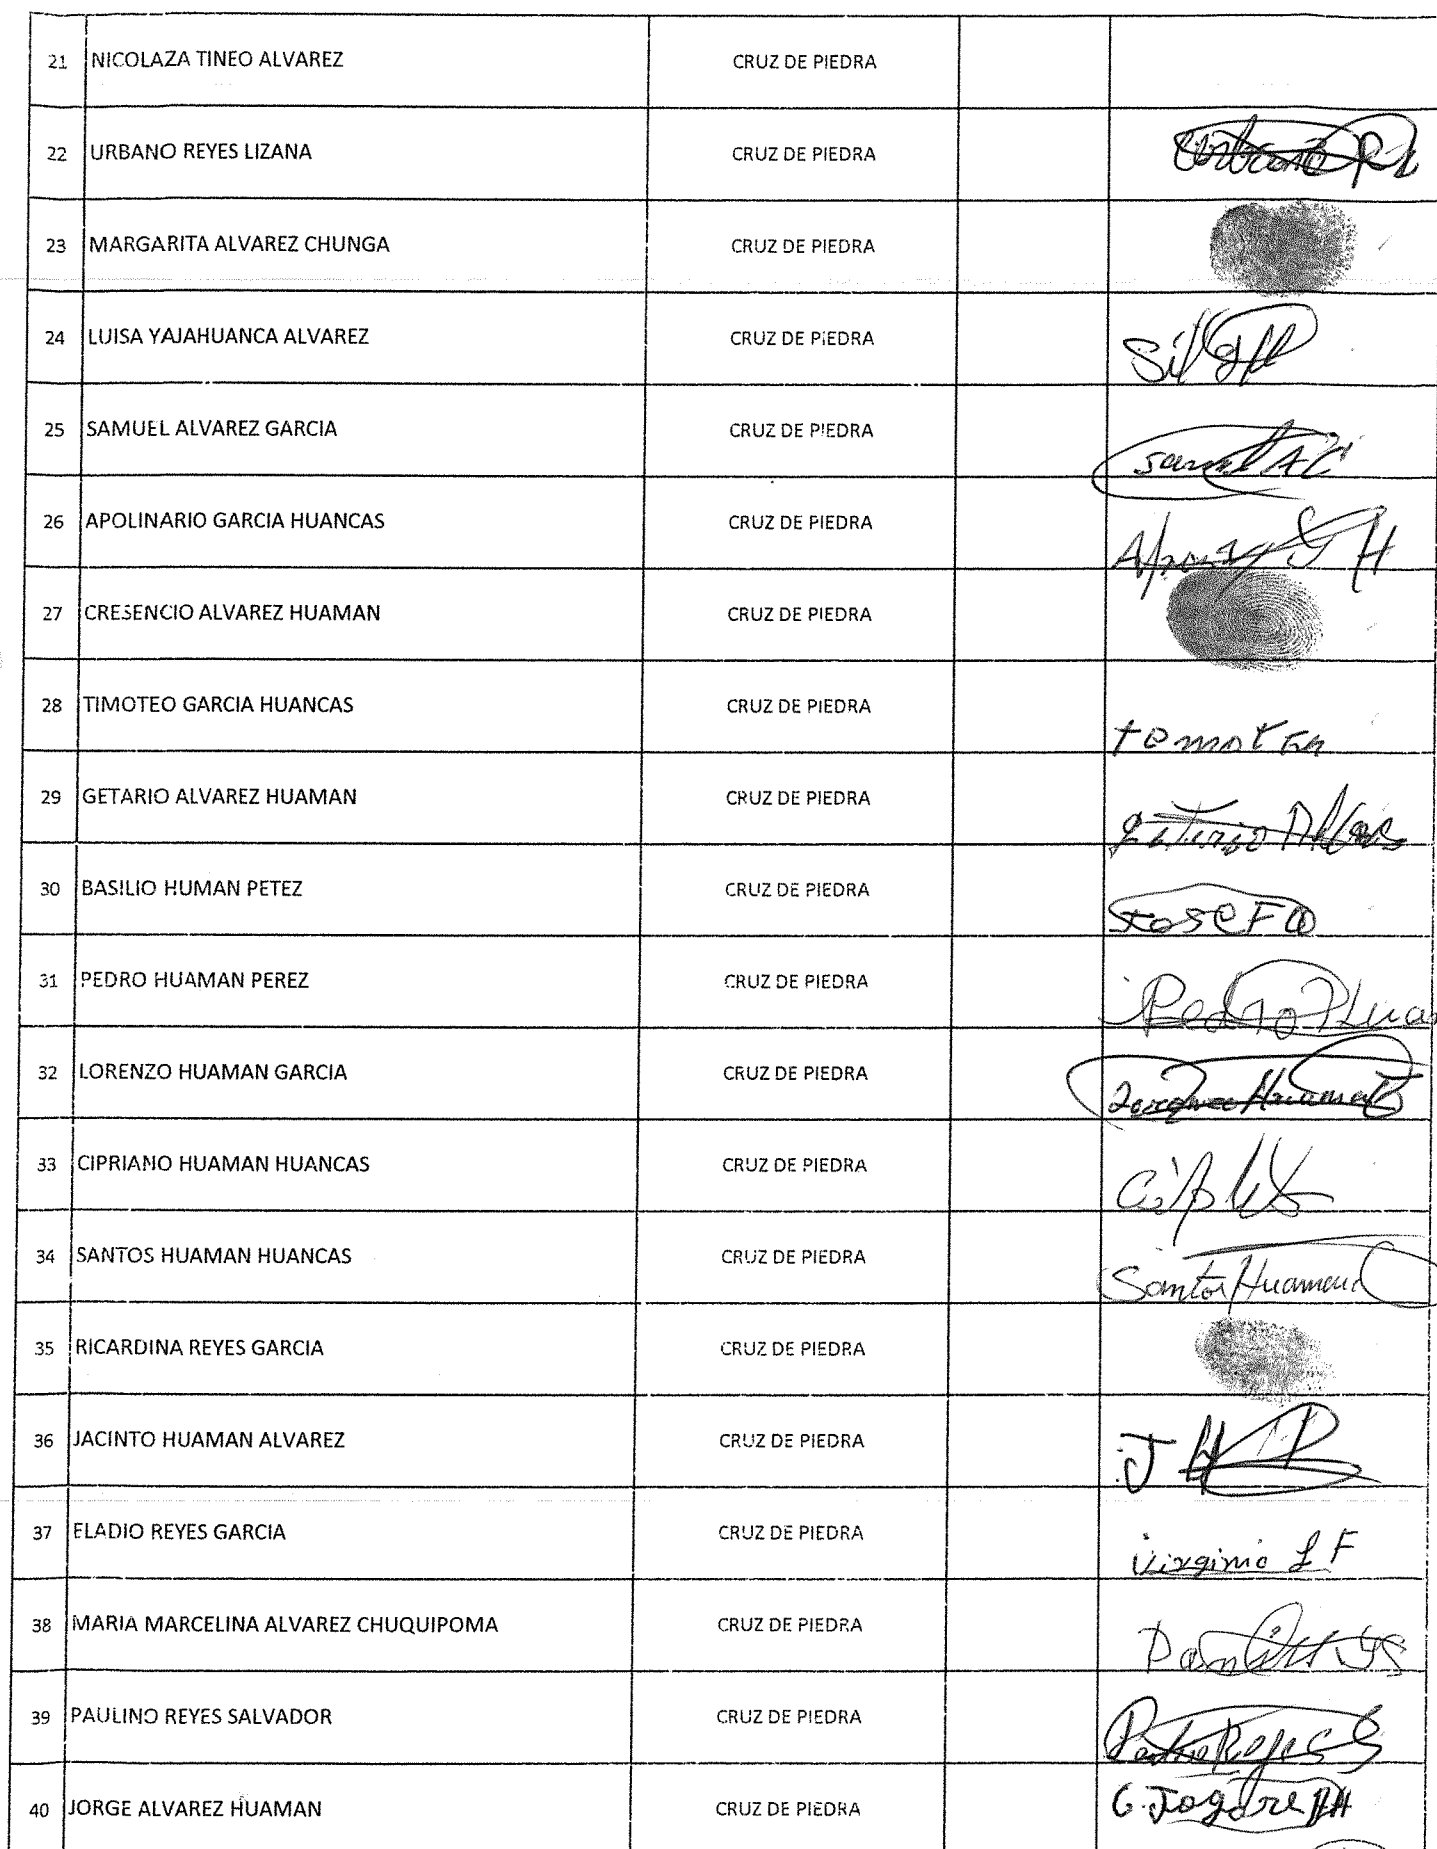 21 NICOLAZA TINEO ALVAREZ CRUZ DE PIEDRA
22 URBANO REYES LIZANA CRUZ DE PIEDRA Urbano R L
23 MARGARITA ALVAREZ CHUNGA CRUZ DE PIEDRA
24 LUISA YAJAHUANCA ALVAREZ CRUZ DE PIEDRA
25 SAMUEL ALVAREZ GARCIA CRUZ DE PIEDRA
26 APOLINARIO GARCIA HUANCAS CRUZ DE PIEDRA
27 CRESENCIO ALVAREZ HUAMAN CRUZ DE PIEDRA
28 TIMOTEO GARCIA HUANCAS CRUZ DE PIEDRA
29 GETARIO ALVAREZ HUAMAN CRUZ DE PIEDRA
30 BASILIO HUMAN PETEZ CRUZ DE PIEDRA
31 PEDRO HUAMAN PEREZ CRUZ DE PIEDRA Pedro
32 LORENZO HUAMAN GARCIA CRUZ DE PIEDRA
33 CIPRIANO HUAMAN HUANCAS CRUZ DE PIEDRA
34 SANTOS HUAMAN HUANCAS CRUZ DE PIEDRA Santos Huaman
35 RICARDINA REYES GARCIA CRUZ DE PIEDRA
36 JACINTO HUAMAN ALVAREZ CRUZ DE PIEDRA
37 ELADIO REYES GARCIA CRUZ DE PIEDRA Virginio L F
38 MARIA MARCELINA ALVAREZ CHUQUIPOMA CRUZ DE PIEDRA
39 PAULINO REYES SALVADOR CRUZ DE PIEDRA
40 JORGE ALVAREZ HUAMAN CRUZ DE PIEDRA